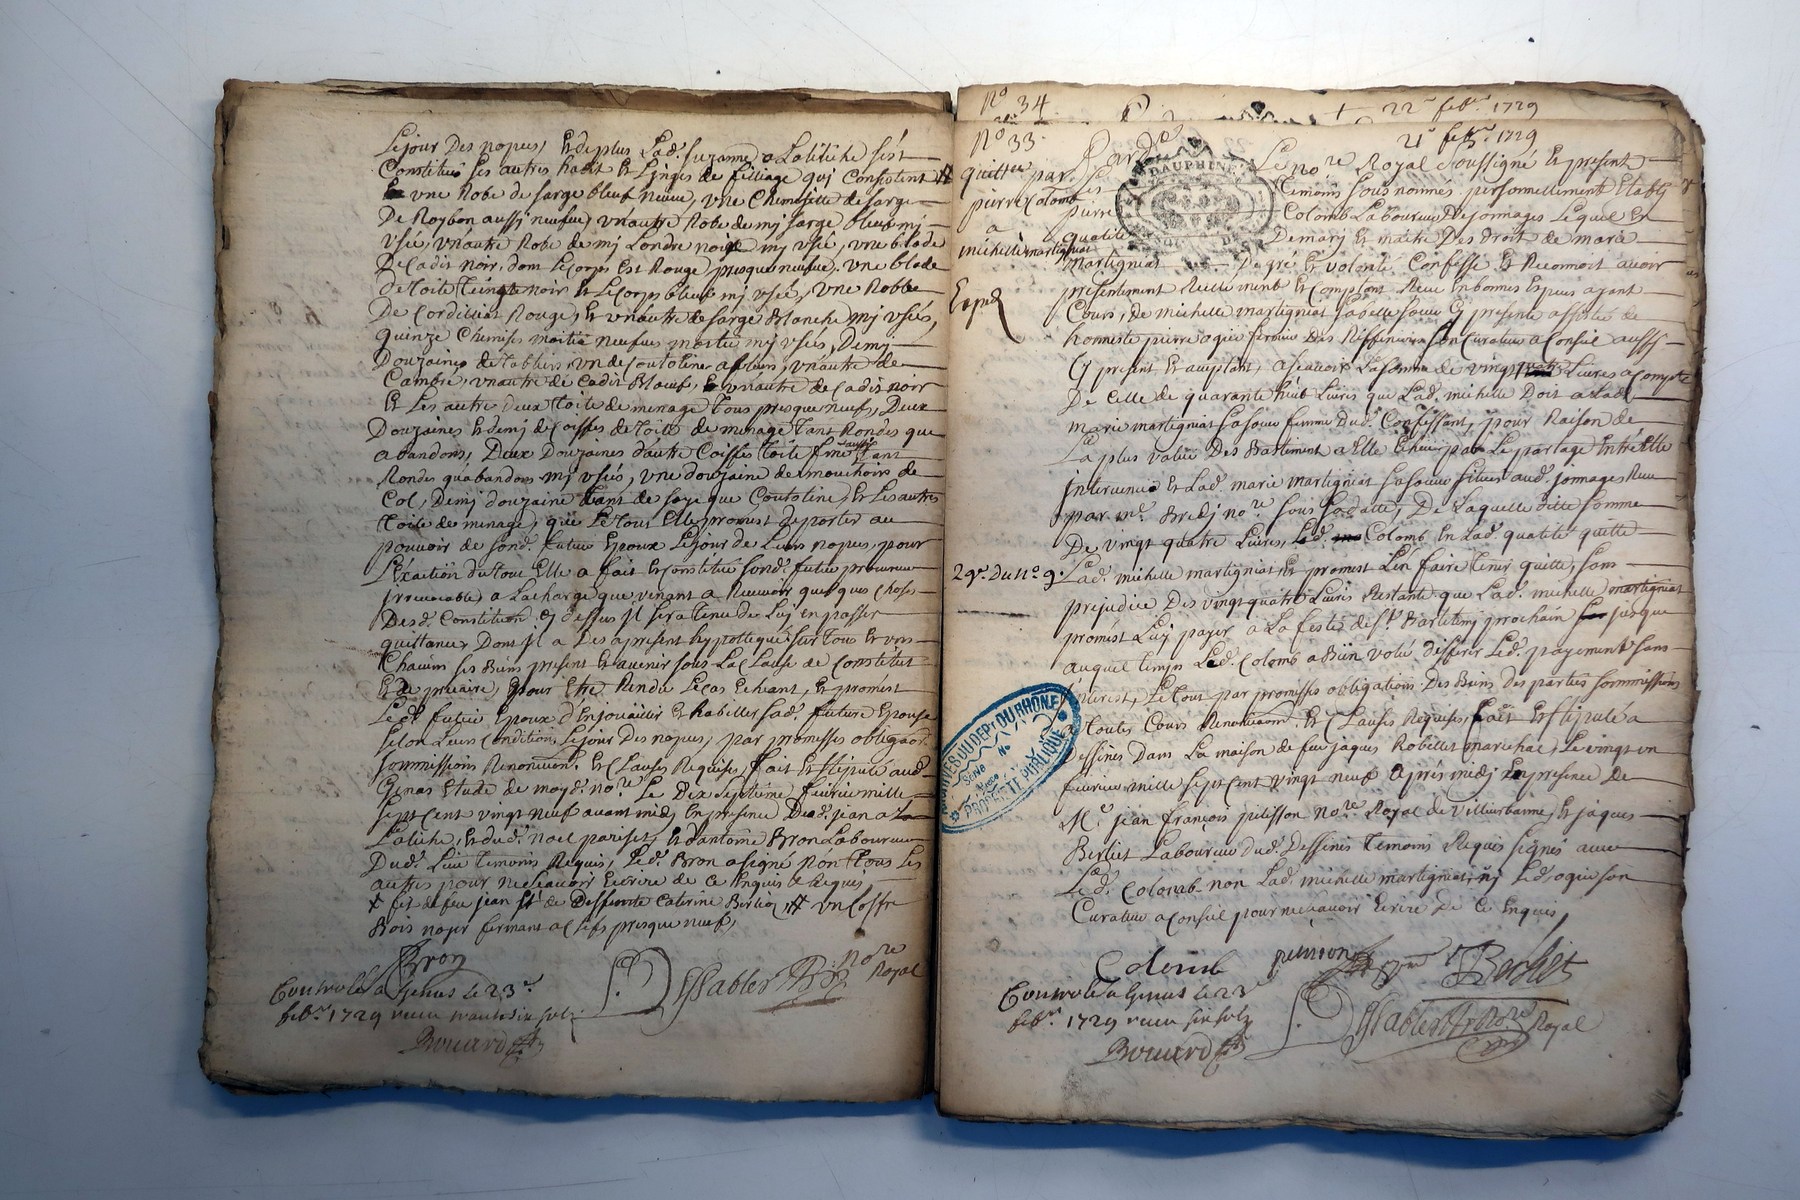 Lejour Des nopces, Et de plus Lad. suzanne a Latiliche s'est
Constitué ses autres habit Et Linges de filliage qui Consistent
En vne Robe de sarge bleuf neuve, vne Chemisette de sarge
De Roybon aussi neufue, vnautre Robe de my sarge bleuf my
vsée, vnautre Robe de my Londre noir my vsée, vne blode
De Cadis noir, dont Lecorps Est Rouge presque neufue, vne blode
de toile teingte noir Et Lecorps bleuf my vsée, vne Robbe
De Cordeliat Rouge, Et vnautre de sarge blanche my vsées,
quinze Chemises moitié neufues moitié my vsées, Demy
Douzaine de tabliers, vn de Coutoline a fleur, vnautre de
Cambre, vnautre de Cadis bleuf, Et vnautre de Cadis noir
Et Les autre deux toile de menage tous presque neuf, Deux
Douzaines Et demy de Coiffes de toile de menage tant Rondes que
abandons, Deux Douzaines d'autre Coiffes toile fine aussy tant
Rondes qu'abandons my vsées, vne douzaine de mouchoirs de
Col, Demy douzaine tant de soye que Coutoline, Et Les autres
toile de menage, que Le tout Elle promest de porter au
pouvoir de sond. futur Epoux Lejour de Leurs nopces, pour
L'Exaction du tout Elle a fait Et Constitué sond. futur procureur
jrrevocable a La charge que venant a Recevoir quelques Choses
Desd. Constitution Cy dessus jl sera tenu de Luy en passer
quittance Dont jl a Des apresent hypotteque sur tous Et vns
Chacuns ses Biens present Et avenir sous La Clause de Constitut
Et de precaire, pour Etre Rendu Le cas Echeant, Et promest
Led. futur Epoux d'Enjouaillir Et habiller sad. future Epouse
selon Leurs Condition, Lejour Des nopces, par promesses obligaon.
soummissions Renonciaon. Et Clauses Requises, fait Et stipulé aud.
Genas Etude de moyd. nore. Le Dix septième feurier mille
sept Cent vingt neuf avant midy En presence Dud. jean a
Latiche, Et dud. noel pariset, Et d'antoine Bron Laboureur
Dud. Lieu temoins Requis, Led. Bron a signé Non tous Les
autres pour ne scavoir Ecrire de Ce Enquis Et Requis
+ fils de feu jean Et de Deffunte Caterine Berlioz, # vn Coffre
Bois noyer fermant a Clefs presque neuf,
Bron
Nore
Royal
Controllé a Genas le 23e
febr. 1729 receu trante six solz
Bouard
No 34
22e febr. 1729
No 33.
21e febr. 1729
quittce
par
pierre Colomb
a
michelle martigniat
Exped
DAUPHINE
Par De
Le Nore Royal soussigné Et present
Les
temoins sous nommés personnellement Etably
pierre
Colomb Laboureur De jonnages Lequel En
qualité
De mary Et maitre Des droit de marie
martigniat
De gré Et volonté Confesse Et Reconnoit avoir
presentement Reellement Et Comptant Receu En bonnes Especes ayant
Cours, de michelle martigniat sa belle sœur Cy presente assistée de
honneste pierre ogier son Curateur a Conseil aussy
Cy present Et aceptant, a scavoir La somme de vingt quatre Livres a compte
De Celle de quarante huit Livres que Lad. michelle Doit a Lad.
marie martigniat sa sœur femme Dud. Confessant, pour Raison de
La plus value Des Bastiment a Elle Echeu par Le partage Entre Elle
jntervenue Et Lad. marie martigniat sa sœur situés aud. jonnages Receu
par me. Bredj nore. sous sa datte, De Laquelle ditte somme
De vingt quatre Livres, Led. Colomb En Lad. qualité quitte
29e. Du No. 9.
Lad. michelle martigniat Et promest L'en faire tenir quitte, sans
prejudice Des vingt quatre Livres Restante que Lad. michelle martigniat
promest Luy payer a La feste de St. Barthelemy prochain jusque
auquel temps Led. Colomb a Bien volu differer Led. payement sans
jnterest, Le tout par promesses obligations Des Biens des parties soummissions
a toutes Cours Renonciaon. Et Clauses Requises, fait Et stipulé a
Dessines Dans La maison de feu jaques Robellet marechal, Le vingt vn
feurier mille sept Cent vingt neuf apres midy En presence De
Me. jean françois pelisson Nore. Royal de Villeurbanne, Et jaques
Berliet Laboureur Dud. Dessines temoins Requis signés avec
Led. Colomb non Lad. michelle martigniat, ny Led. ogier son
Curateur a Conseil pour ne scavoir Ecrire De Ce Enquis,
ARCHIVES DU DEPT DU RHONE
PROPRIETE PUBLIQUE
Colomb
pelisson
Berliet
Controllé a Genas le 23e
febr. 1729 receu six solz
Nore Royal
Bouard